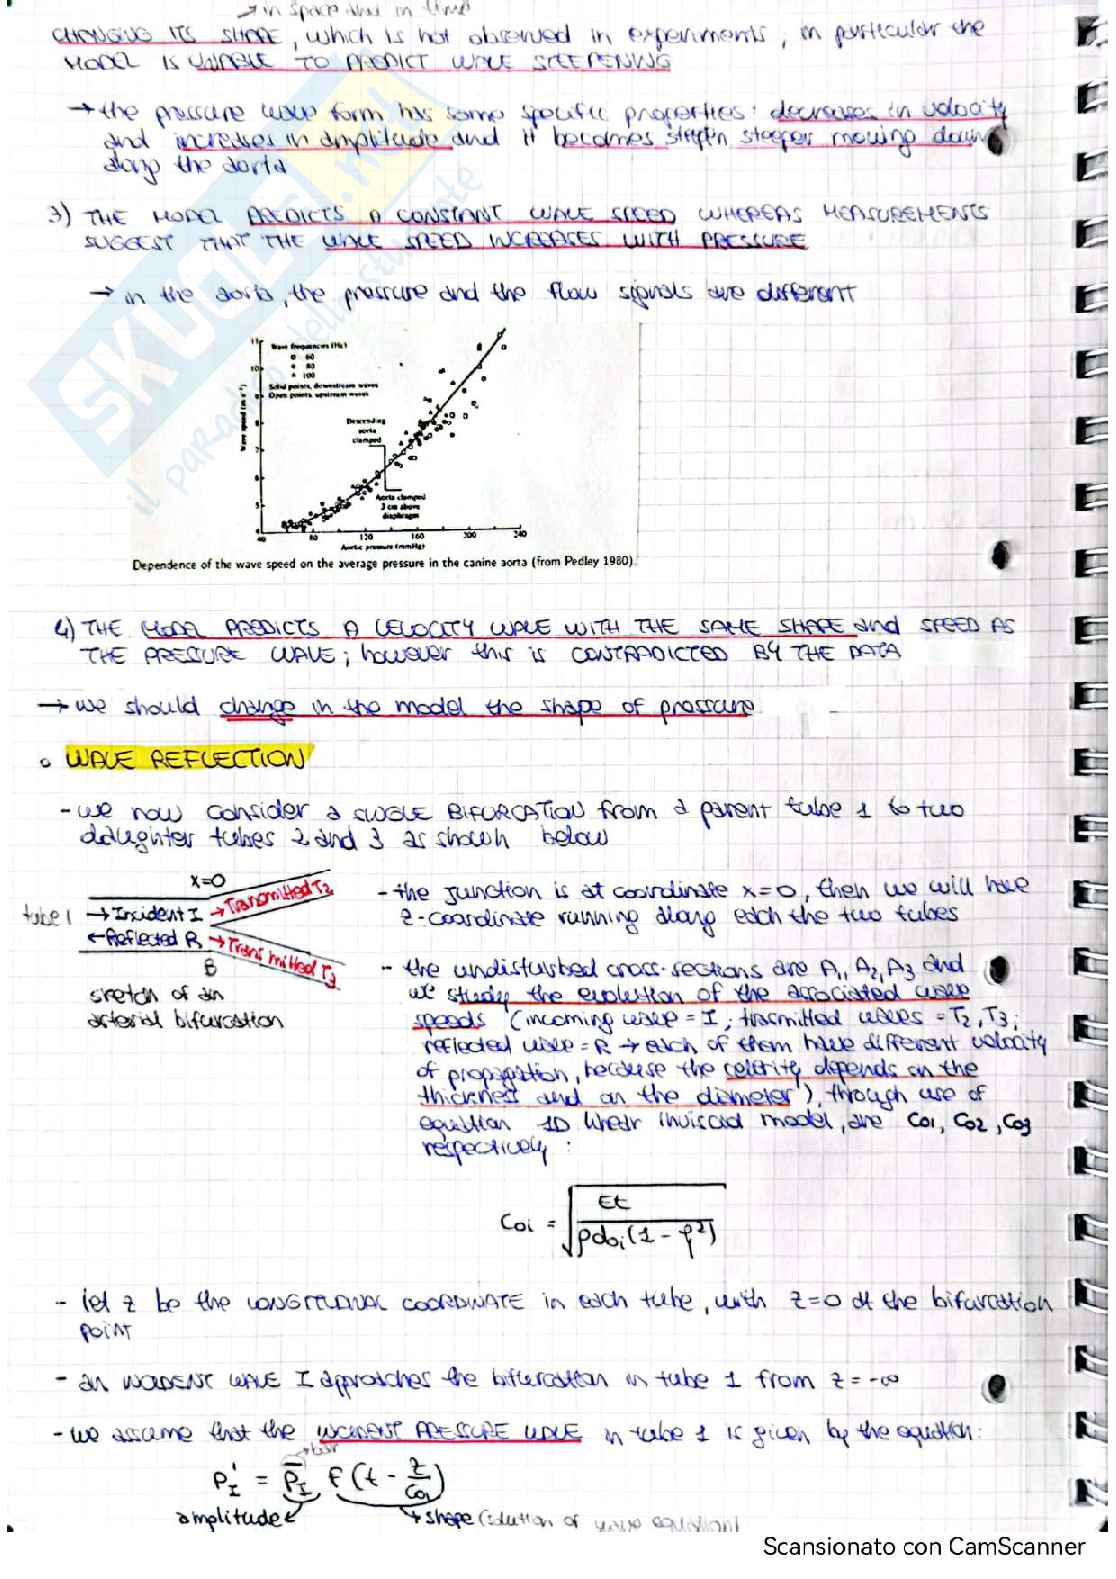 → in space and in time
CHANGING ITS SHAPE, which is not observed in experiments, in particular the
MODEL IS UNABLE TO PREDICT WAVE STEEPENING
→ the pressure wave form has some specific properties: decreases in velocity
and increases in amplitude and it becomes steeper moving down
along the aorta
3) THE MODEL PREDICTS A CONSTANT WAVE SPEED WHEREAS MEASUREMENTS
SUGGEST THAT THE WAVE SPEED INCREASES WITH PRESSURE
→ in the aorta, the pressure and the flow signals are different
Wave frequencies (Hz)
60
80
100
Solid points, downstream waves
Open points, upstream waves
Descending
aorta
clamped
Aorta clamped
3 cm above
diaphragm
Wave speed (m s⁻¹)
11
10
9
8
7
6
5
4
40 80 120 160 200 240
Aortic pressure (mmHg)
Dependence of the wave speed on the average pressure in the canine aorta (from Pedley 1980).
4) THE MODEL PREDICTS A VELOCITY WAVE WITH THE SAME SHAPE and SPEED AS
THE PRESSURE WAVE; however this is CONTRADICTED BY THE DATA
→ we should change in the model the shape of pressure
◦ WAVE REFLECTION
- we now consider a SINGLE BIFURCATION from a parent tube 1 to two
daughter tubes 2 and 3 as shown below
x=0
tube 1 → Incident I → Transmitted T2
← Reflected R → Transmitted T3
B
sketch of an
arterial bifurcation
- the junction is at coordinate x=0, then we will have
z-coordinate running along each the two tubes
- the undisturbed cross-sections are A1, A2, A3 and
we study the evolution of the associated wave
speeds (incoming wave = I; trasmitted waves = T2, T3;
reflected wave = R → each of them have different velocity
of propagation, because the celerity depends on the
thickness and on the diameter), through use of
equation 1D linear inviscid model, are C01, C02, C03
respectively:
C0i = √(Et / ρd0i(1-φ²))
- let z be the LONGITUDINAL COORDINATE in each tube, with z=0 at the bifurcation
point
- an INCIDENT WAVE I approaches the bifurcation in tube 1 from z = -∞
- we assume that the INCIDENT PRESSURE WAVE in tube 1 is given by the equation:
→ bar
P'I = P̄I f(t - z/C01)
amplitude ↙ ↘ shape (solution of wave equation)
SKUOLA.net
il paradiso dello studente
Scansionato con CamScanner